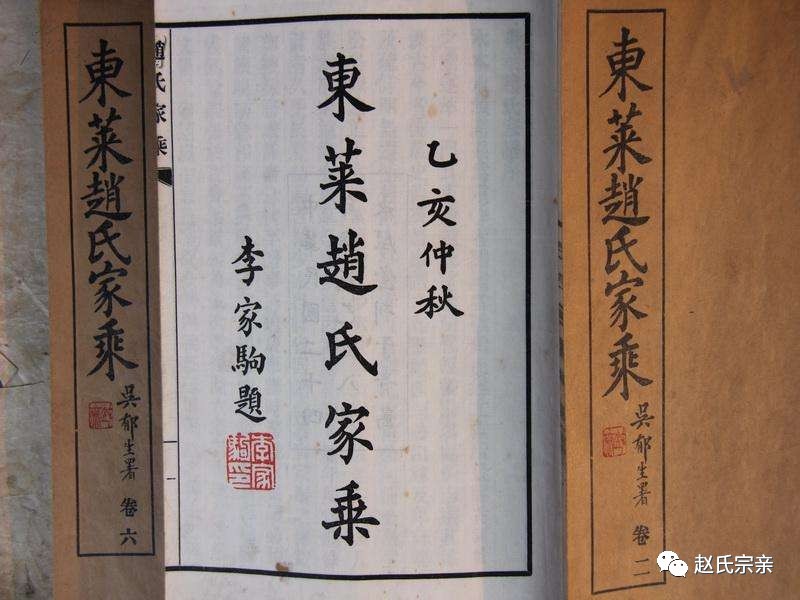 東萊趙氏家乘
吳郁生署 卷二
乙亥仲秋
東萊趙氏家乘
李家駒題
李家駒印
趙氏家乘
一
東萊趙氏家乘
吳郁生署 卷六
赵氏宗亲